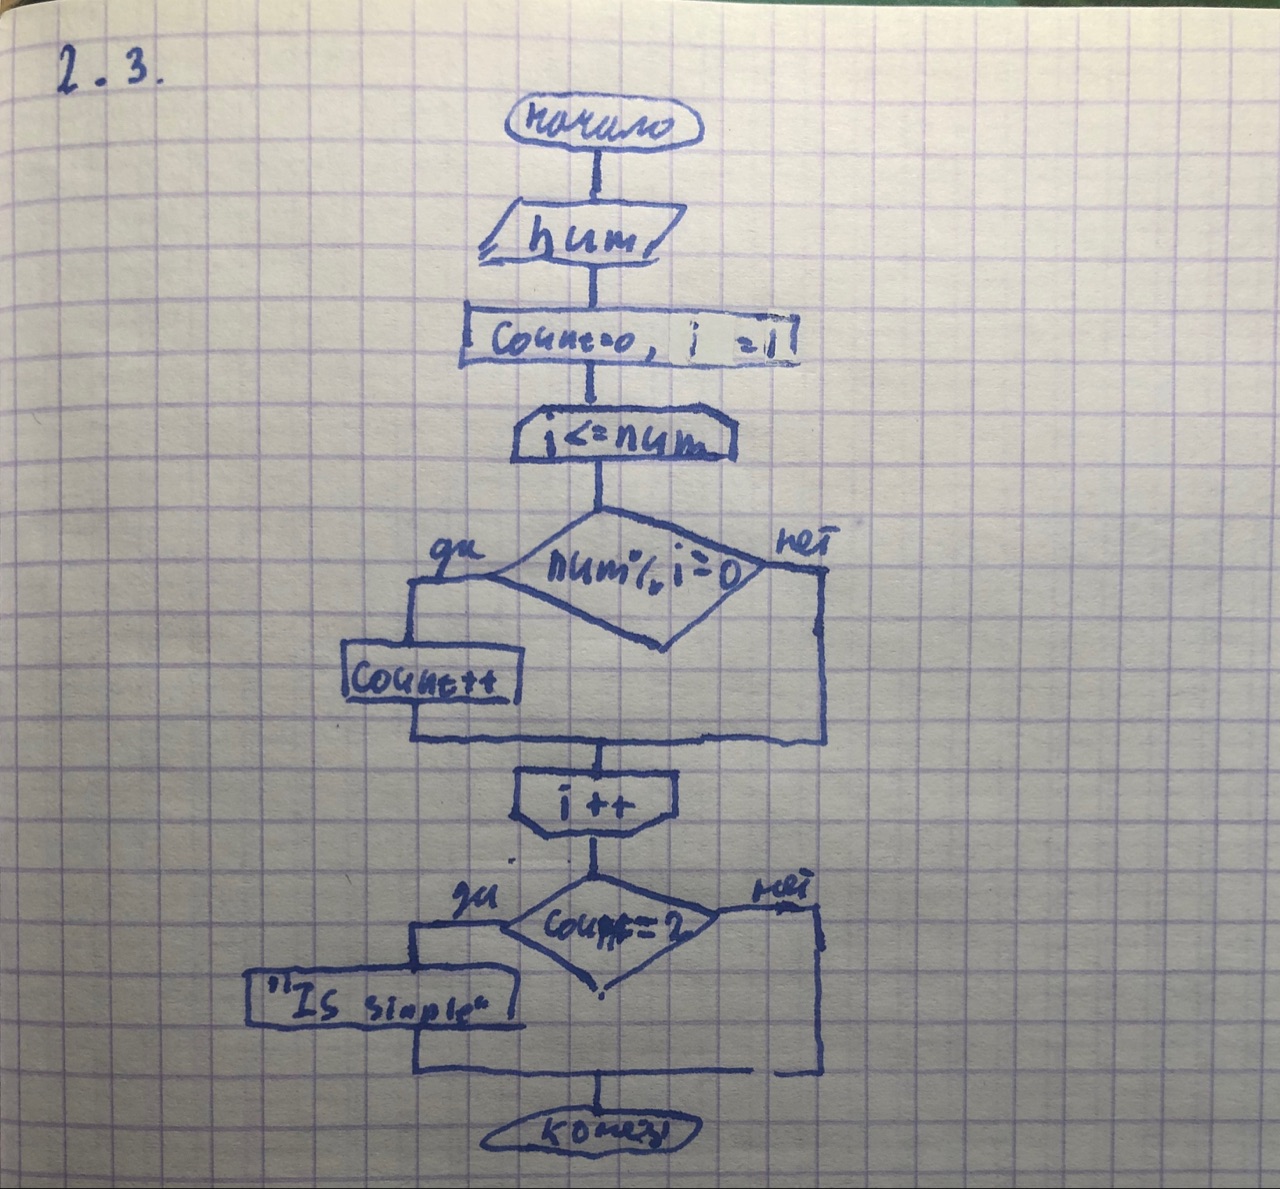 2.3.
начало
num
Count=0, i = 1
i<=num
да
нет
num%i=0
Count++
i++
да
нет
Count=2
"Is simple"
конец